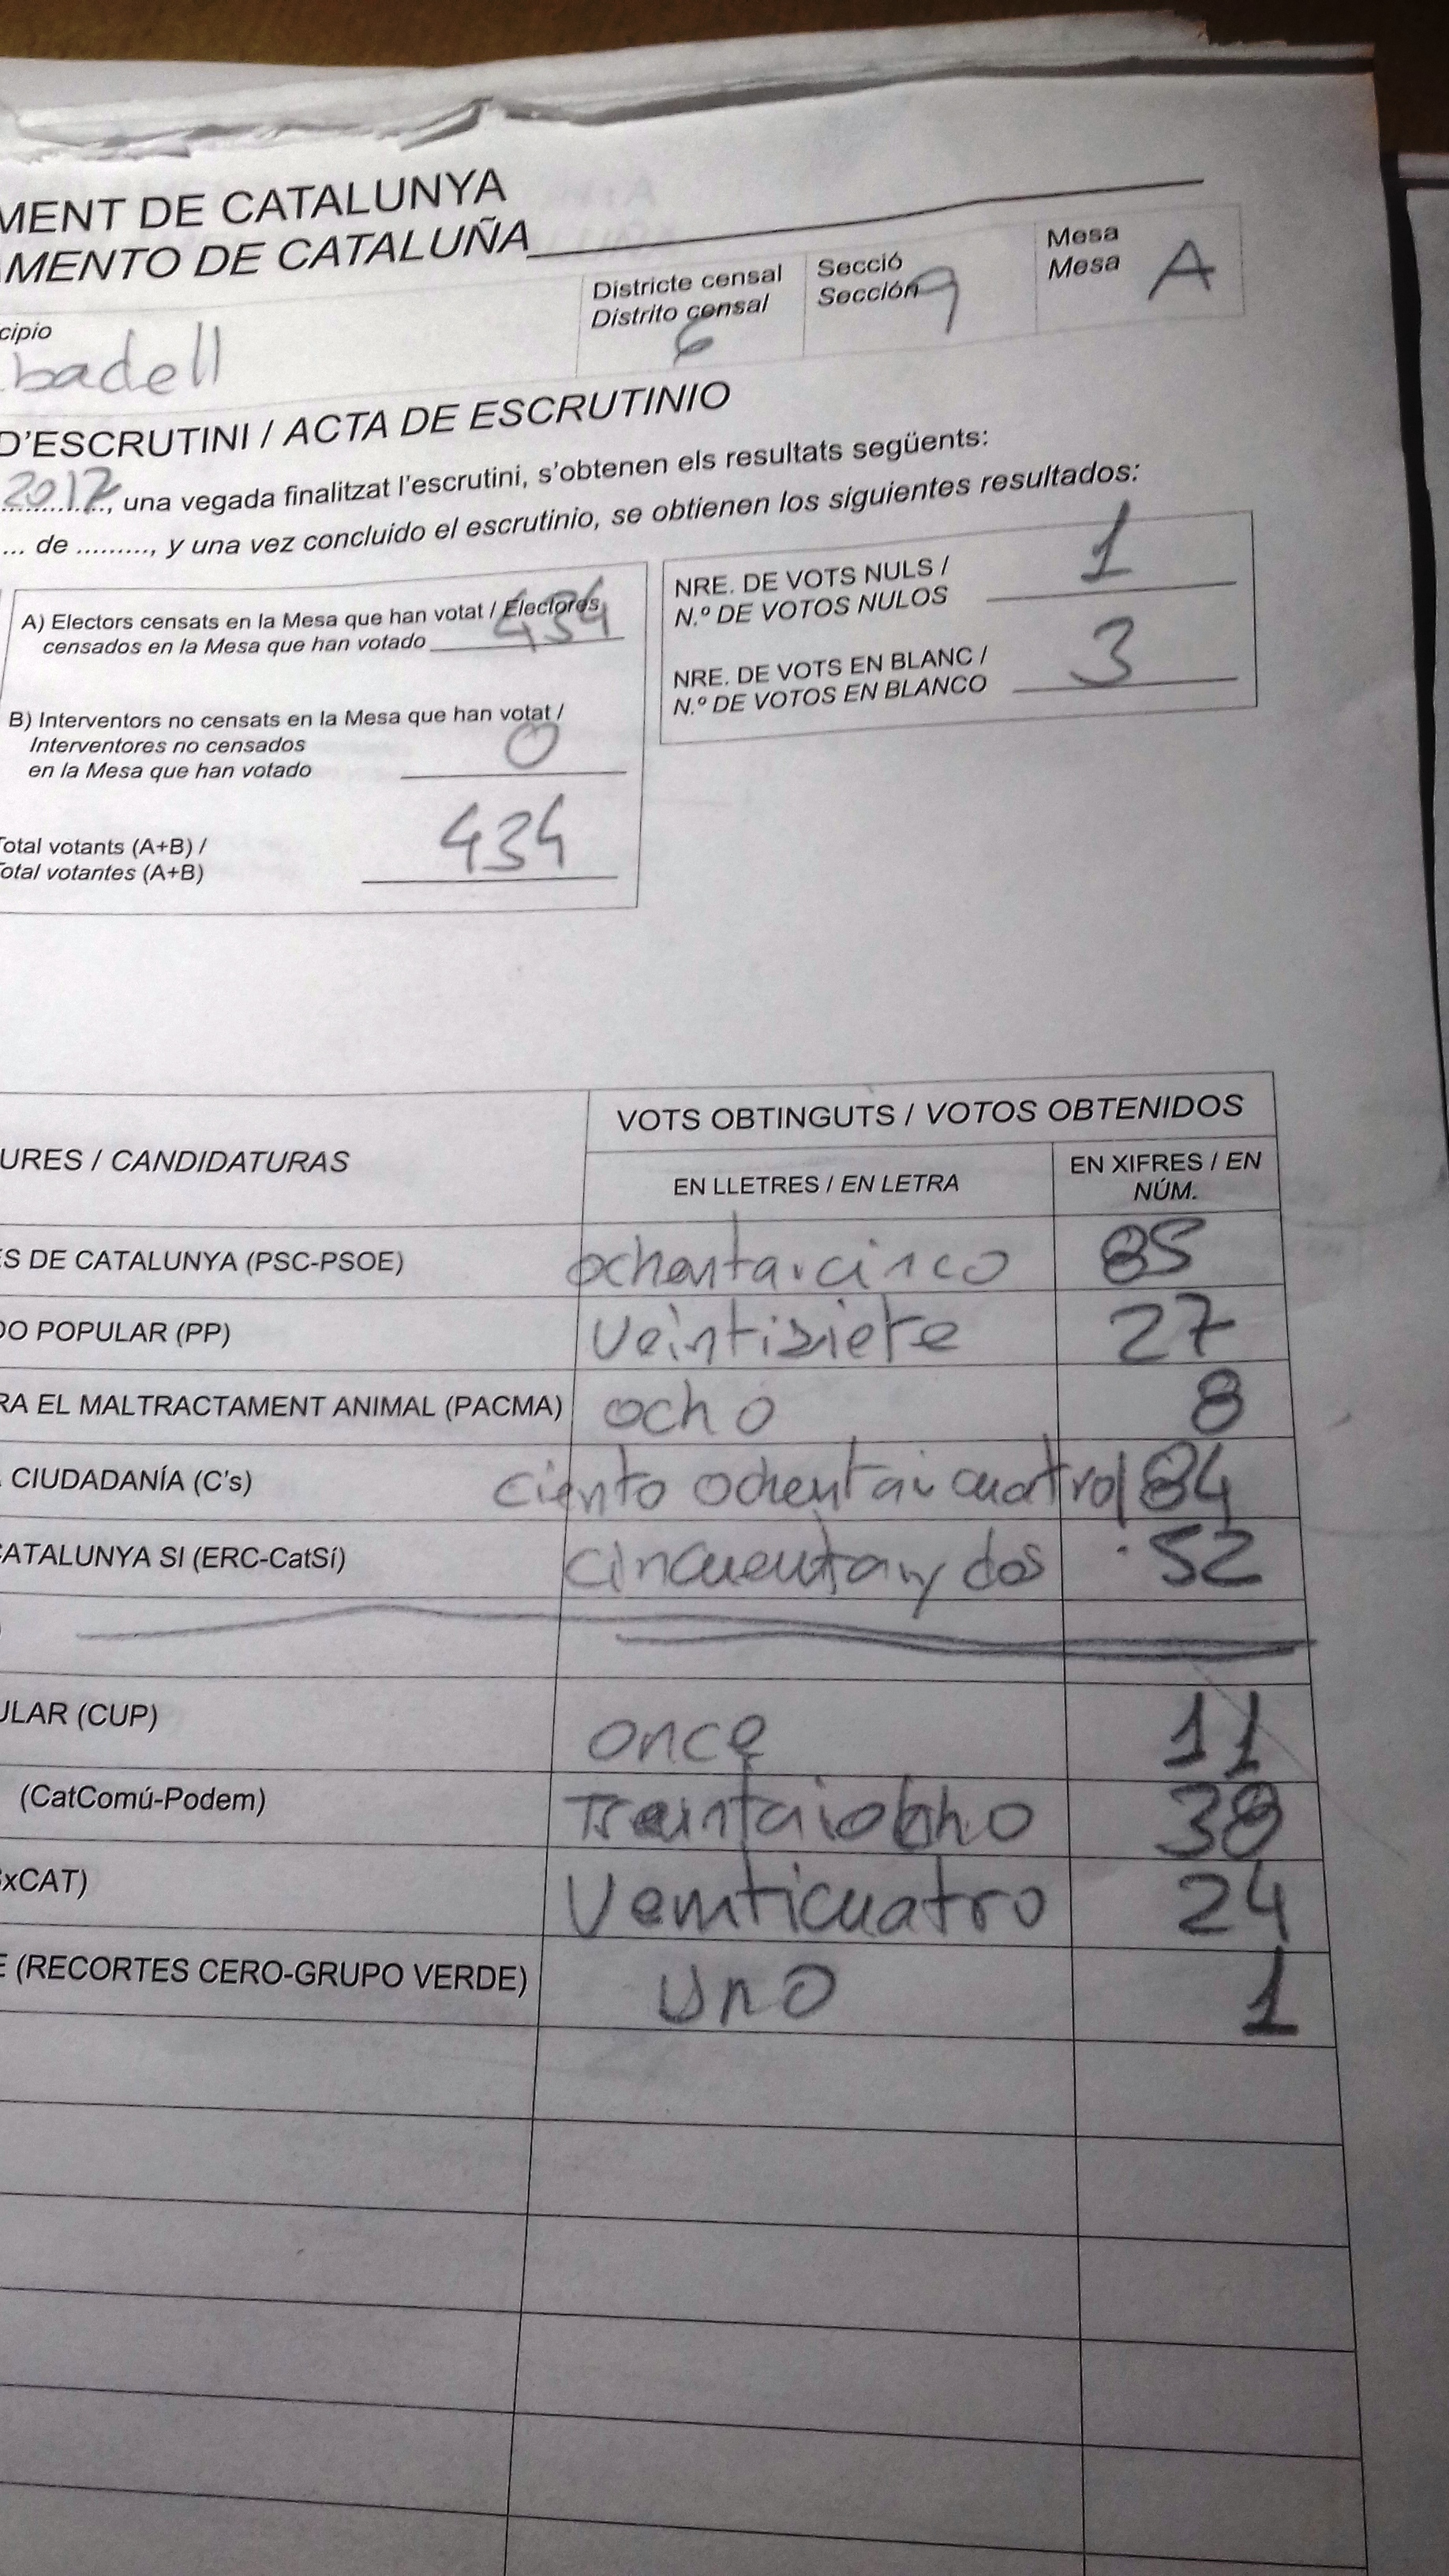 MENT DE CATALUNYA
AMENTO DE CATALUÑA
cipio
badell
Districte censal
Distrito censal
6
Secció
Sección
9
Mesa
Mesa
A
D'ESCRUTINI / ACTA DE ESCRUTINIO
2017, una vegada finalitzat l'escrutini, s'obtenen els resultats següents:
... de ........., y una vez concluído el escrutinio, se obtienen los siguientes resultados:
A) Electors censats en la Mesa que han votat / Electores
censados en la Mesa que han votado 434
B) Interventors no censats en la Mesa que han votat /
Interventores no censados
en la Mesa que han votado 0
Total votants (A+B) /
Total votantes (A+B) 434
NRE. DE VOTS NULS /
N.º DE VOTOS NULOS 1
NRE. DE VOTS EN BLANC /
N.º DE VOTOS EN BLANCO 3
URES / CANDIDATURAS
VOTS OBTINGUTS / VOTOS OBTENIDOS
EN LLETRES / EN LETRA
EN XIFRES / EN
NÚM.
ES DE CATALUNYA (PSC-PSOE) ochentaicinco 85
DO POPULAR (PP) veintisiete 27
RA EL MALTRACTAMENT ANIMAL (PACMA) ocho 8
CIUDADANÍA (C's) ciento ochentaicuatro 184
CATALUNYA SI (ERC-CatSí) cincuentay dos 52
)
ULAR (CUP) once 11
(CatComú-Podem) Treintaiocho 38
xCAT) Veinticuatro 24
E (RECORTES CERO-GRUPO VERDE) uno 1